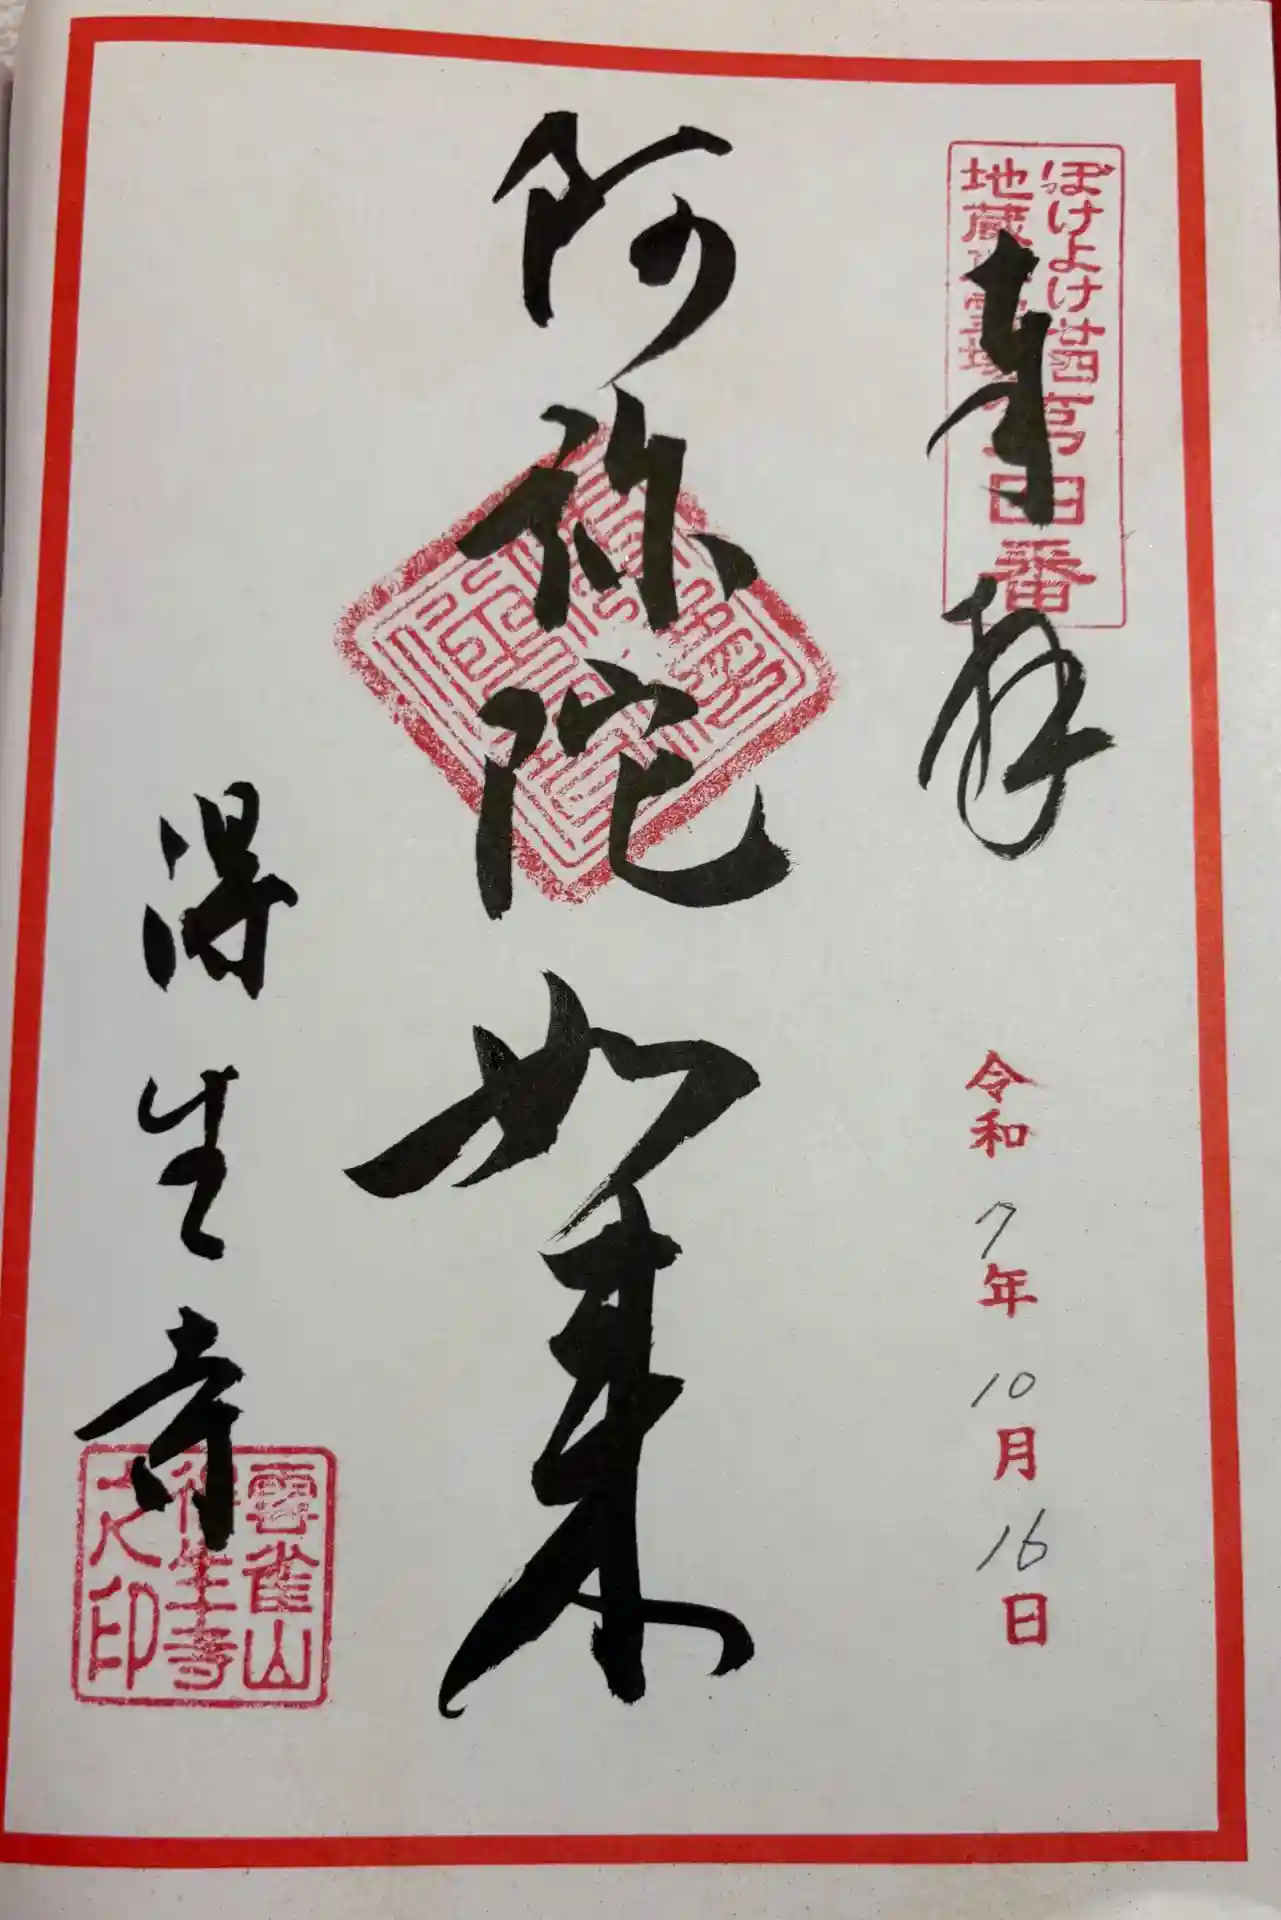 奉拝
ぼけよけ
地蔵
番
令和7年10月16日
阿弥陀如来
得生寺
雲雀山
得生寺
之印